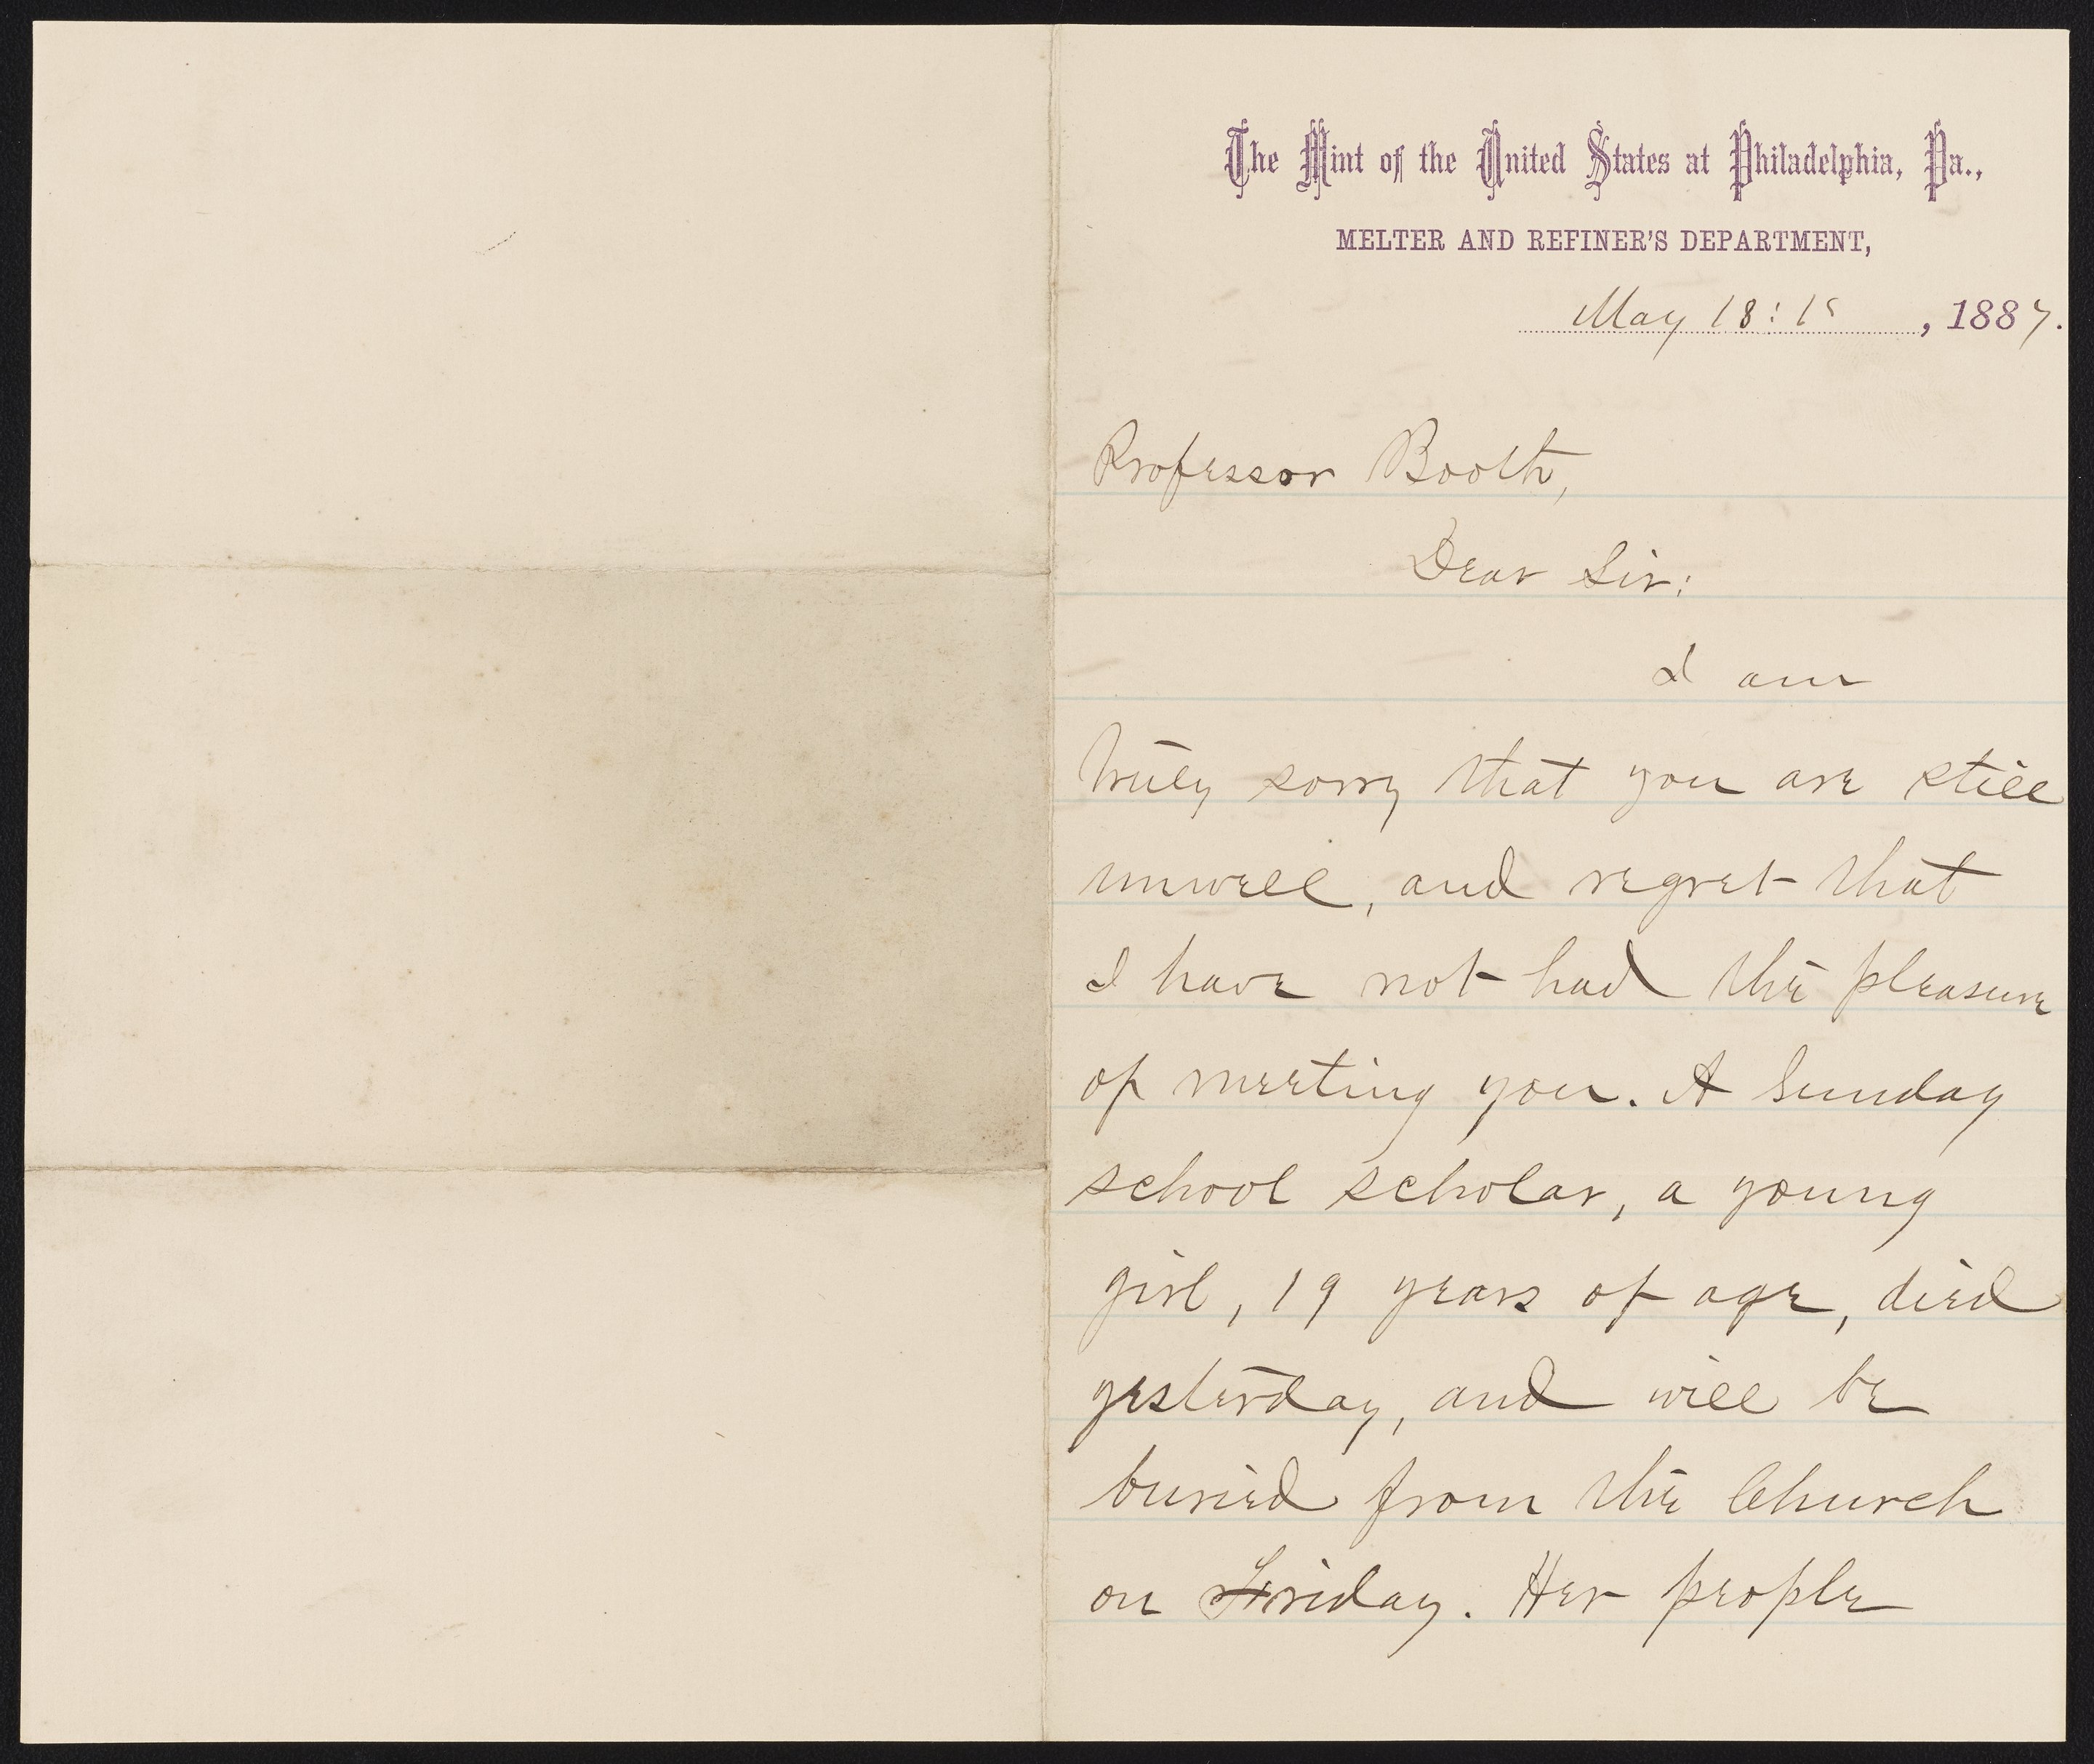 The Mint of the United States at Philadelphia, Pa.,
MELTER AND REFINER'S DEPARTMENT,
May 18: , 1887.
Professor Booth,
Dear Sir:
I am
truly sorry that you are still
unwell, and regret that
I have not had the pleasure
of meeting you. A Sunday
school scholar, a young
girl, 19 years of age, died
yesterday, and will be
buried from the Church
on Friday. Her people